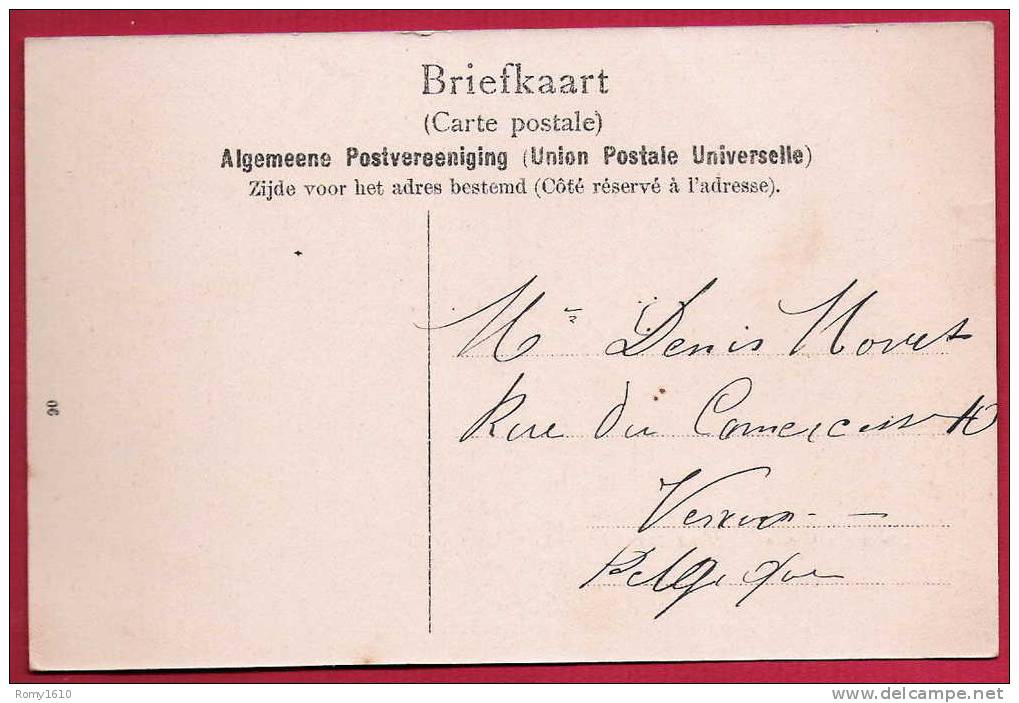 Briefkaart
(Carte postale)
Algemeene Postvereeniging (Union Postale Universelle)
Zijde voor het adres bestemd (Côté réservé à l'adresse).
Mr Denis
Rue Du 40
Belgique
90
Romy1610
www.delcampe.net